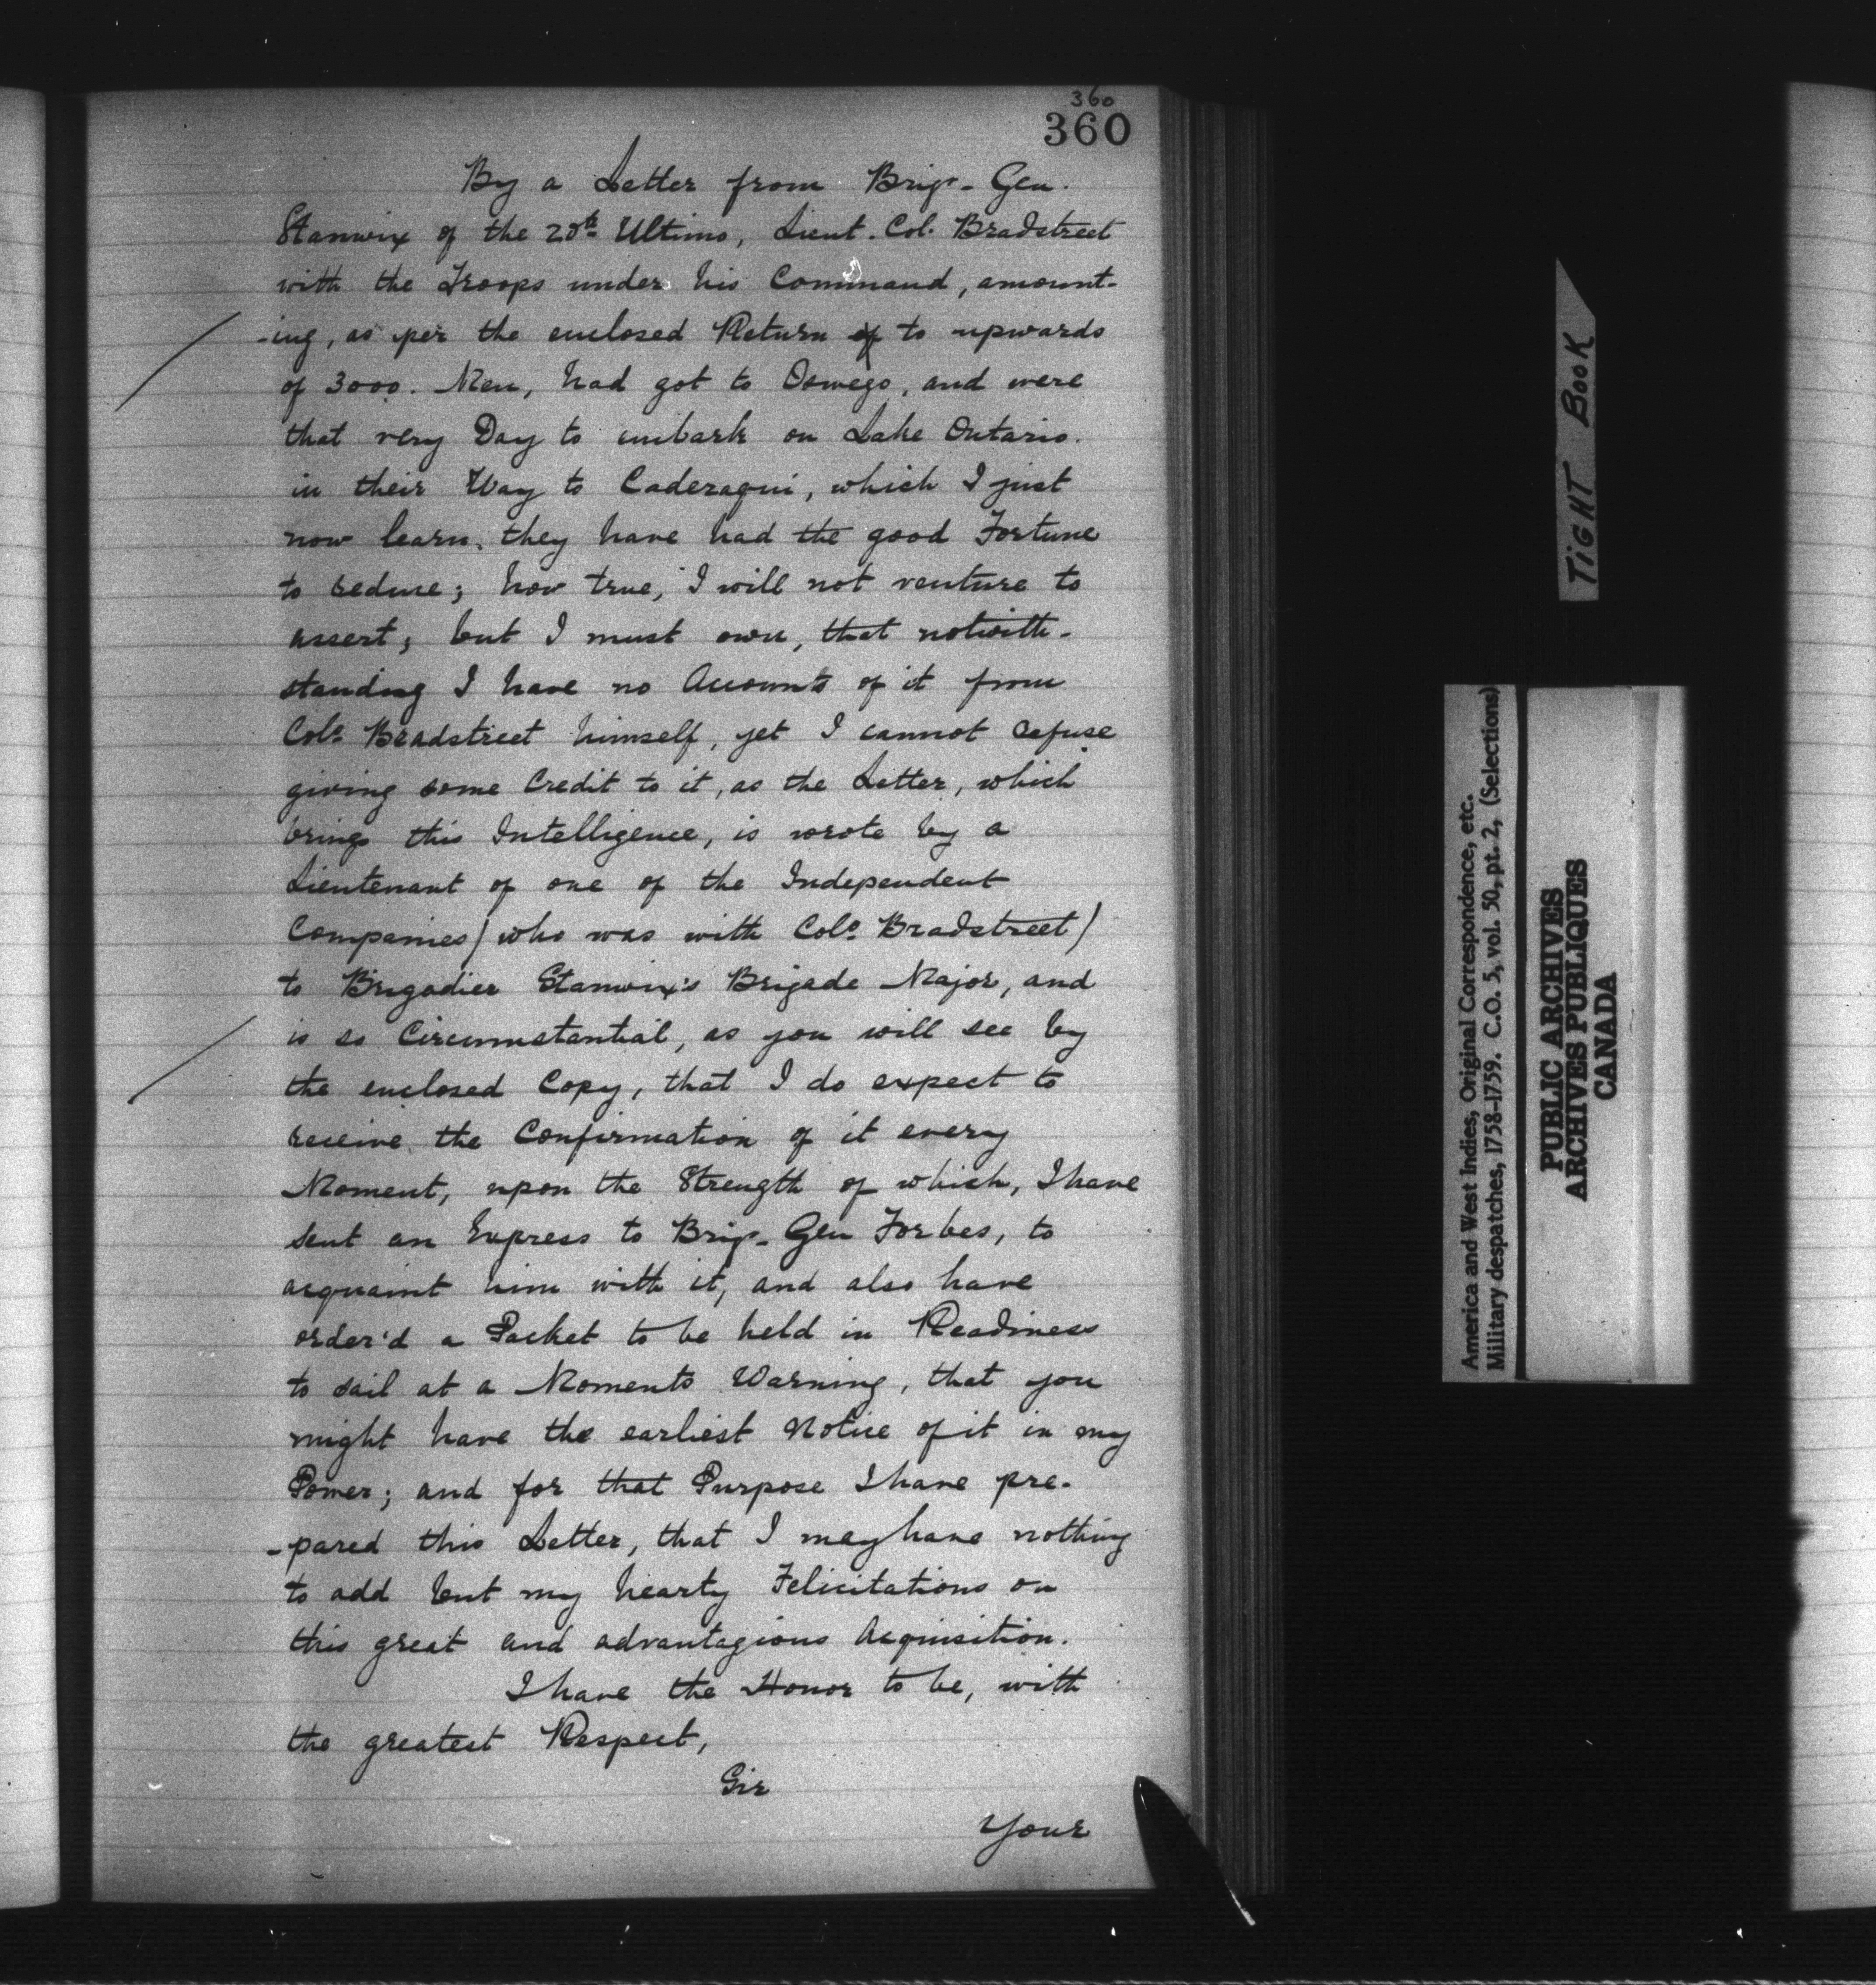 360
360
By a Letter from Brigr. Gen.
Stanwix of the 20th Ultimo, Lieut. Col. Bradstreet
with the Troops under his Command, amount-
-ing, as per the enclosed Return of to upwards
of 3000. Men, had got to Oswego, and were
that very Day to embark on Lake Ontario.
in their Way to Caderaqui, which I just
now learn, they have had the good Fortune
to reduce; how true, I will not venture to
assert; but I must own, that notwith-
standing I have no Accounts of it from
Colo. Bradstreet himself, yet I cannot refuse
giving some Credit to it, as the Letter, which
brings this Intelligence, is wrote by a
Lieutenant of one of the Independent
Companies (who was with Colo. Bradstreet)
to Brigadier Stanwix's Brigade Major, and
is so Circumstantial, as you will see by
the enclosed Copy, that I do expect to
receive the Confirmation of it every
Moment, upon the Strength of which, I have
sent an Express to Brigr. Gen Forbes, to
acquaint him with it, and also have
order'd a Packet to be held in Readiness
to sail at a Moments Warning, that you
might have the earliest Notice of it in my
Power; and for that Purpose I have pre-
-pared this Letter, that I may have nothing
to add but my hearty Felicitations on
this great and advantagious Acquisition.
I have the Honor to be, with
the greatest Respect,
Sir
Your
TIGHT BOOK
America and West Indies, Original Correspondence, etc.
Military despatches, 1758-1759. C.O. 5, vol. 50, pt. 2, (Selections)
PUBLIC ARCHIVES
ARCHIVES PUBLIQUES
CANADA